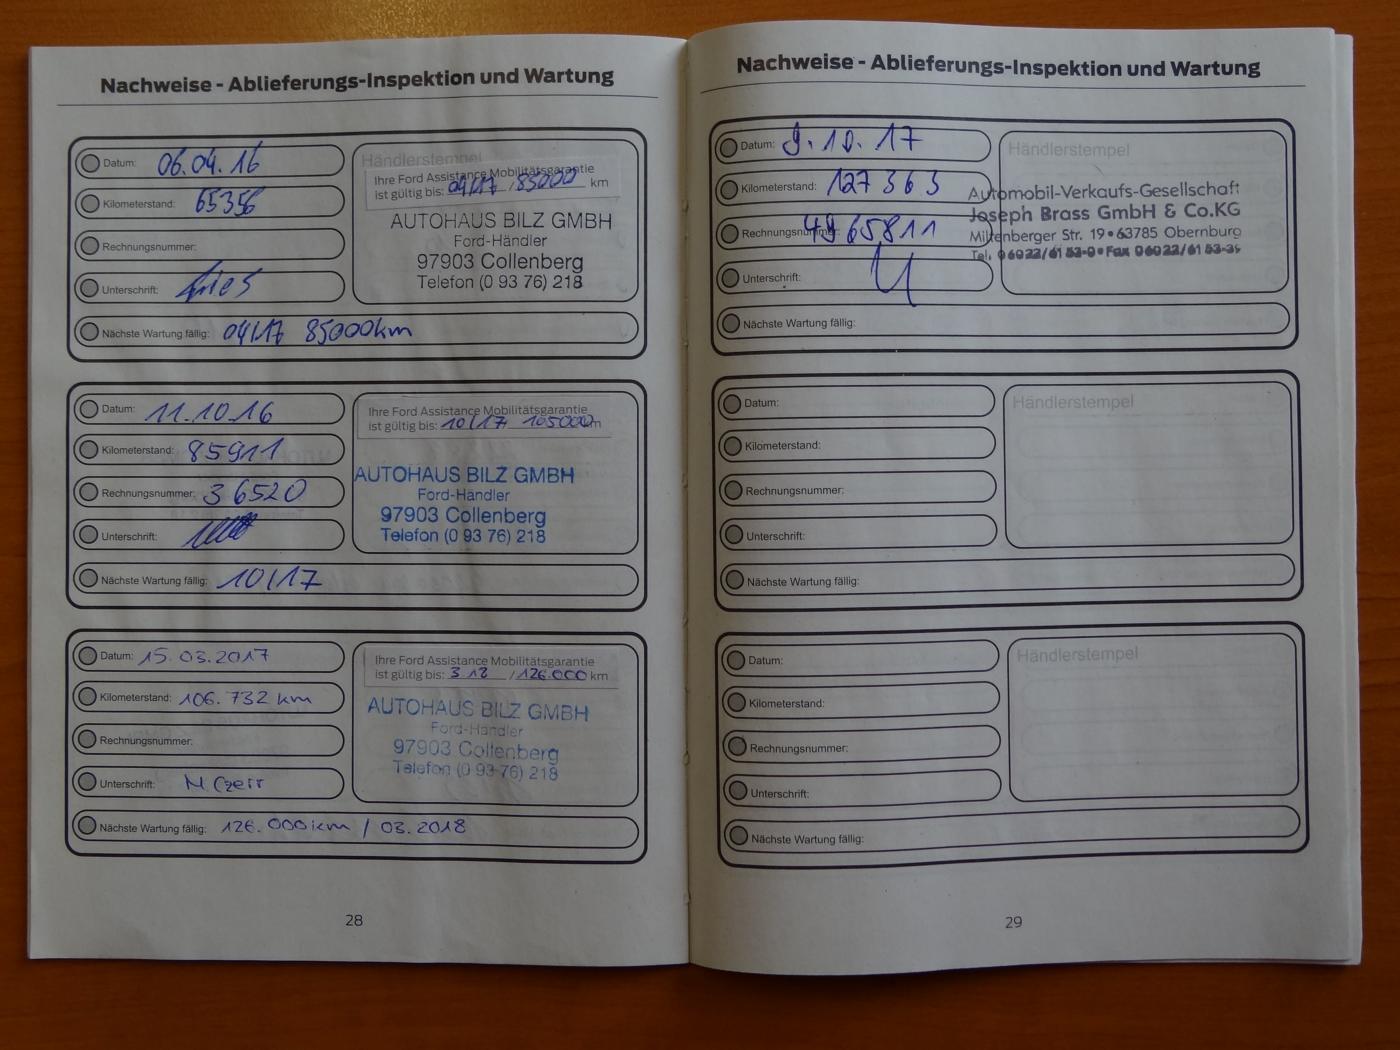 Nachweise - Ablieferungs-Inspektion und Wartung
Datum: 06.04.16
Kilometerstand: 65356
Rechnungsnummer:
Unterschrift:
Nächste Wartung fällig: 04/17 85000km
Händlerstempel
Ihre Ford Assistance Mobilitätsgarantie
ist gültig bis: 04/17 / 85000 km
AUTOHAUS BILZ GMBH
Ford-Händler
97903 Collenberg
Telefon (0 93 76) 218
Datum: 11.10.16
Kilometerstand: 85911
Rechnungsnummer: 36520
Unterschrift:
Nächste Wartung fällig: 10/17
Ihre Ford Assistance Mobilitätsgarantie
ist gültig bis: 10/17 105000 km
AUTOHAUS BILZ GMBH
Ford-Händler
97903 Collenberg
Telefon (0 93 76) 218
Datum: 15.03.2017
Kilometerstand: 106.732 km
Rechnungsnummer:
Unterschrift:
Nächste Wartung fällig: 126.000km / 03.2018
Ihre Ford Assistance Mobilitätsgarantie
ist gültig bis: 3 18 / 126.000 km
AUTOHAUS BILZ GMBH
Ford-Händler
97903 Collenberg
Telefon (0 93 76) 218
28
Nachweise - Ablieferungs-Inspektion und Wartung
Datum: 9.10.17
Kilometerstand: 127363
Rechnungsnummer: 4965811
Unterschrift:
Nächste Wartung fällig:
Händlerstempel
Automobil-Verkaufs-Gesellschaft
Joseph Brass GmbH & Co.KG
Miltenberger Str. 19 • 63785 Obernburg
Tel. 06022/61 53-0 • Fax 06022/61 53-
Datum:
Kilometerstand:
Rechnungsnummer:
Unterschrift:
Nächste Wartung fällig:
Händlerstempel
Datum:
Kilometerstand:
Rechnungsnummer:
Unterschrift:
Nächste Wartung fällig:
Händlerstempel
29